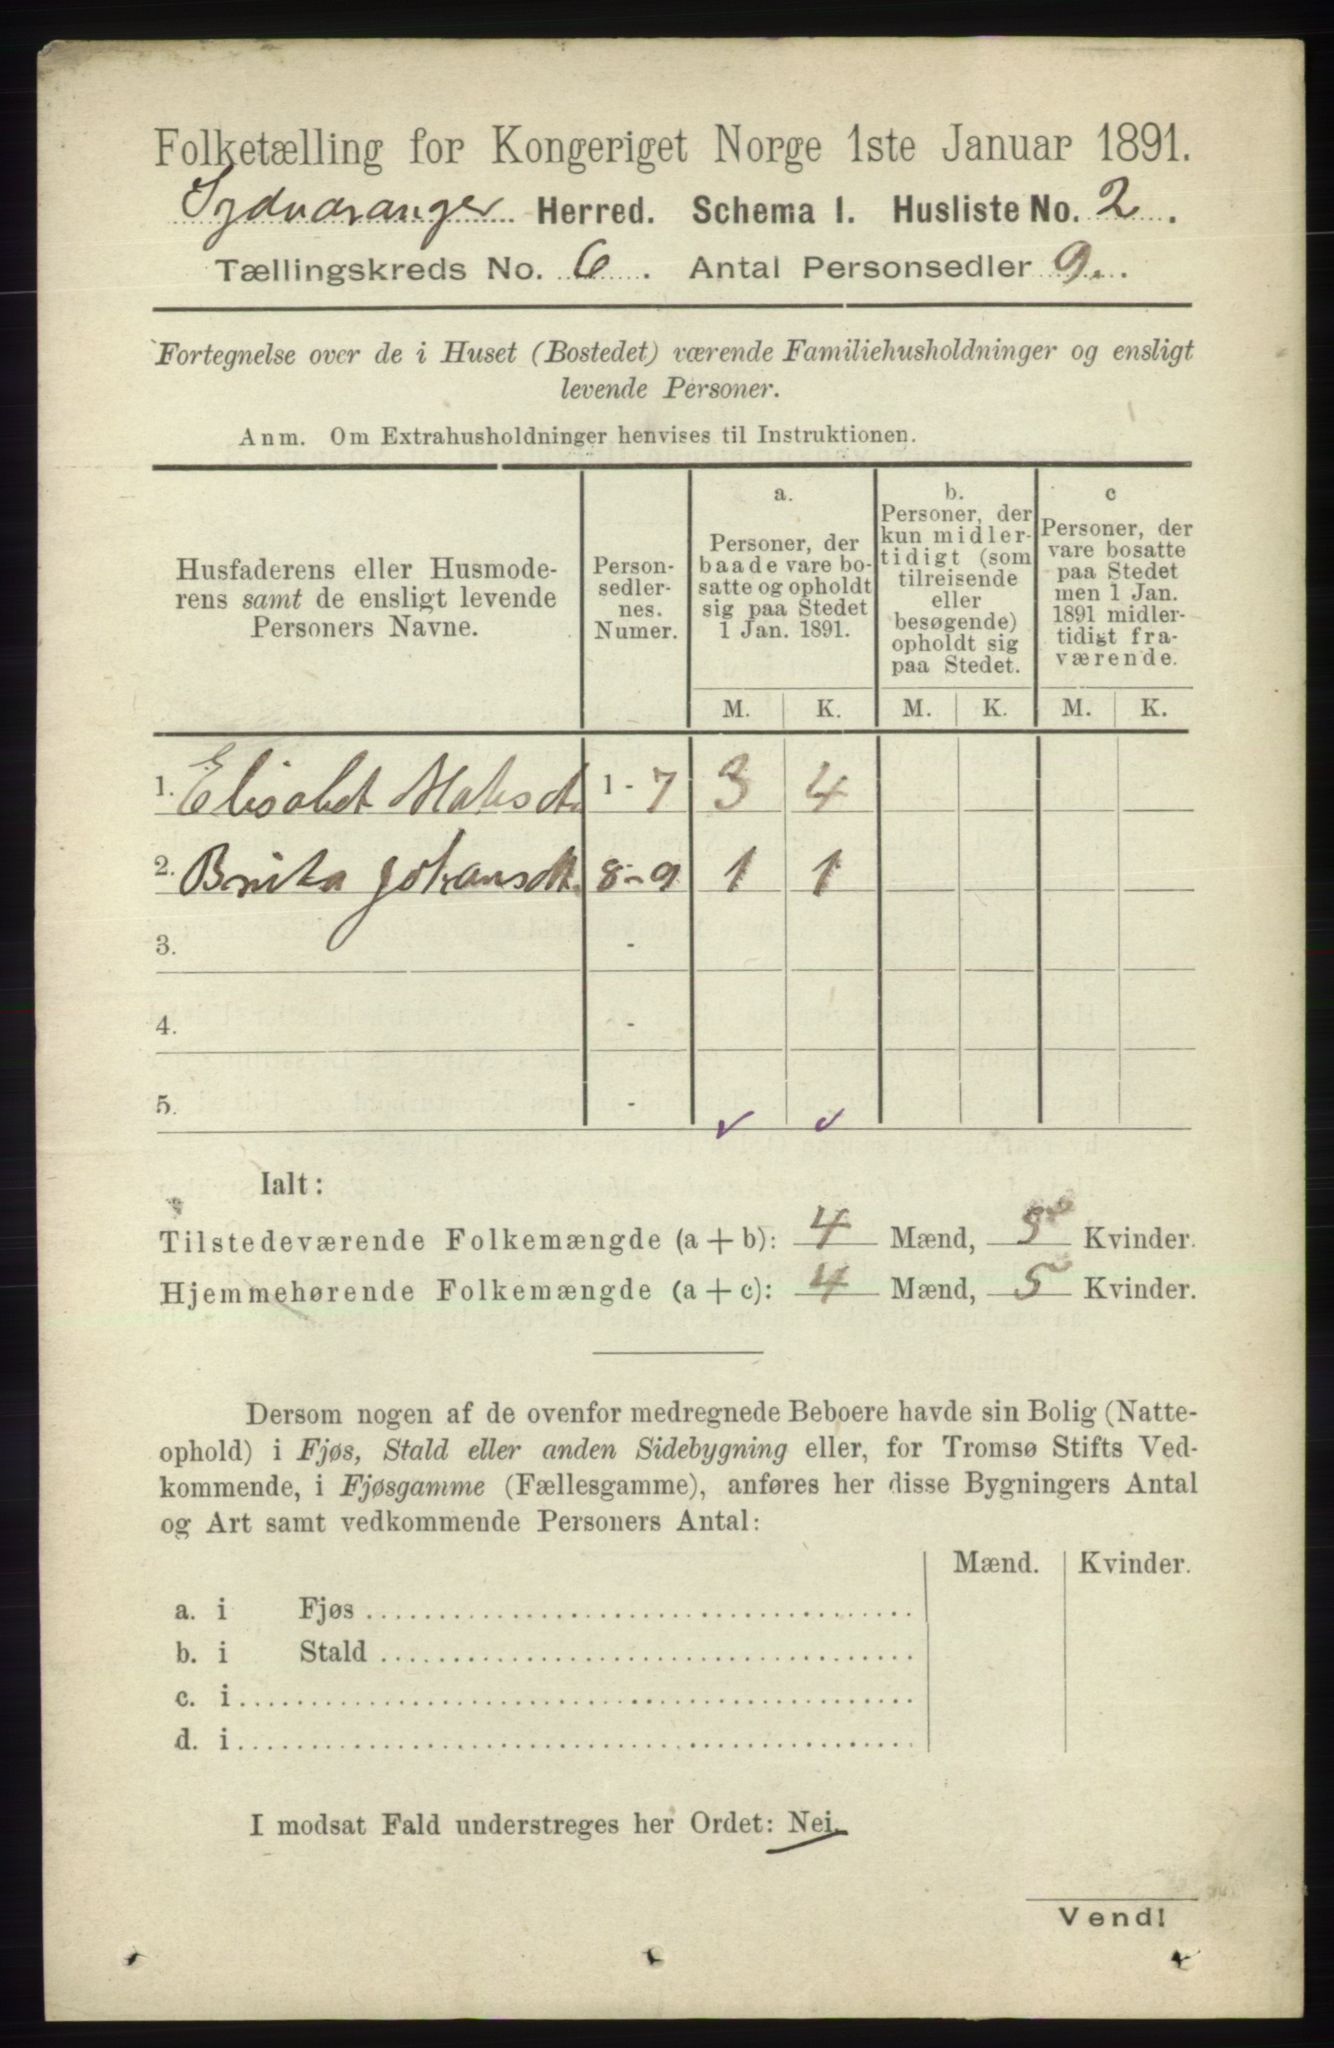 Folketælling for Kongeriget Norge 1ste Januar 1891.
Sydvaranger Herred. Schema I. Husliste No. 2.
Tællingskreds No. 6. Antal Personsedler 9.
Fortegnelse over de i Huset (Bostedet) værende Familiehusholdninger og ensligt
levende Personer.
Anm. Om Extrahusholdninger henvises til Instruktionen.
Husfaderens eller Husmode-
rens samt de ensligt levende
Personers Navne.
Person-
sedler-
nes.
Numer.
a.
Personer, der
baade vare bo-
satte og opholdt
sig paa Stedet
1 Jan. 1891.
b.
Personer, der
kun midler-
tidigt (som
tilreisende
eller
besøgende)
opholdt sig
paa Stedet.
c
Personer, der
vare bosatte
paa Stedet
men 1 Jan.
1891 midler-
tidigt fra-
værende.
M. K. M. K. M. K.
1. Elisabet 1 - 7 3 4
2. Brita Johansdt. 8 - 9 1 1
3. -
4. -
5. -
Ialt:
Tilstedeværende Folkemængde (a + b): 4 Mænd, 5 Kvinder.
Hjemmehørende Folkemængde (a + c): 4 Mænd, 5 Kvinder.
Dersom nogen af de ovenfor medregnede Beboere havde sin Bolig (Natte-
ophold) i Fjøs, Stald eller anden Sidebygning eller, for Tromsø Stifts Ved-
kommende, i Fjøsgamme (Fællesgamme), anføres her disse Bygningers Antal
og Art samt vedkommende Personers Antal:
Mænd. Kvinder.
a. i Fjøs
b. i Stald
c. i
d. i
I modsat Fald understreges her Ordet: Nei.
Vend!